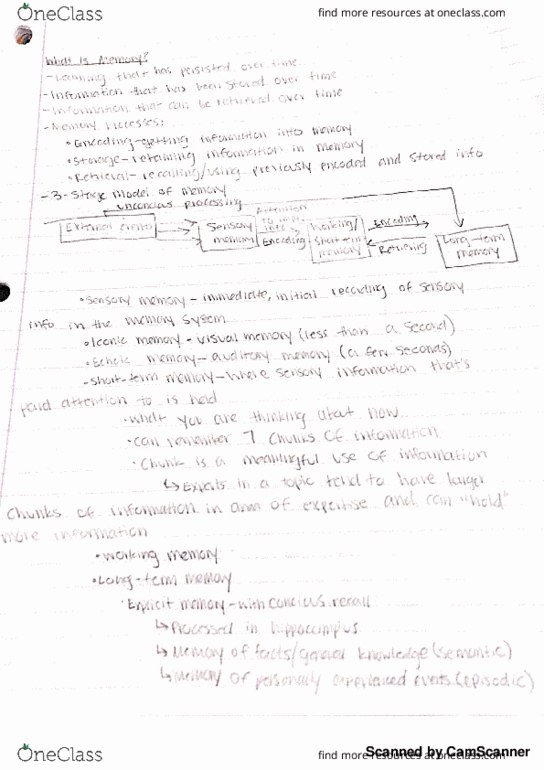 OneClass
find more resources at oneclass.com
What is Memory?
-Learning that has persisted over time.
-Information that has been stored over time
-Information that can be retrieved over time
-Memory Processes:
•Encoding-getting information into memory
•Storage-retaining information in memory
•Retrieval-recalling/using previously encoded and stored info
-3-Stage Model of Memory
unconcious processing
External events
Sensory memory
Attention to
Encoding
Working/ Short-term memory
Encoding
Retrieving
Long-term memory
•Sensory memory-immediate, initial recording of sensory
info in the memory system
•Iconic memory-visual memory (less than a second)
•Echoic memory-auditory memory (a few seconds)
-Short-term memory-where sensory information that's
paid attention to is held
•What you are thinking about now..
•can remember 7 chunks of information
•Chunk is a meaningful use of information
↳Experts in a topic tend to have larger
chunks of information in area of expertise and can "hold"
more information
•Working memory
•Long-term memory
•Explicit memory-with concious recall
↳Processed in hippocampus
↳Memory of facts/general knowledge (semantic)
↳Memory of personally experienced events (episodic)
OneClass
find more resources at oneclass.com
Scanned by CamScanner